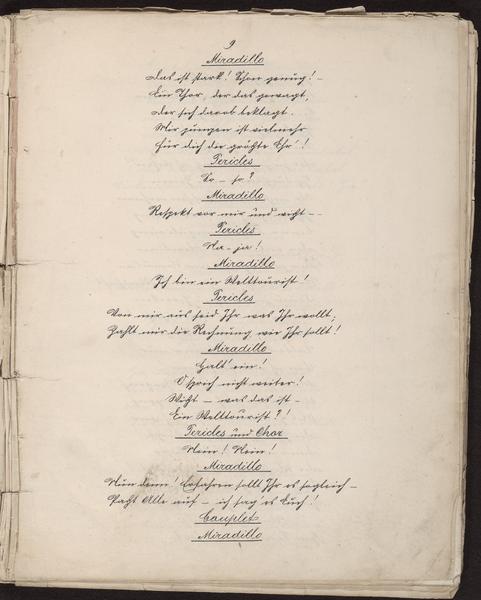 9
Miradillo
Das ist stark! Schon genug! –
Ein Thor, der das gewagt,
Der sich darob beklagt.
Mir ist vielmehr
Für dich die größte Ehr'!
Pericles
So – so?
Miradillo
Respekt vor mir und wißt –
Pericles
Na – ja!
Miradillo
Ich bin ein Welttourist!
Pericles
Von mir aus seid Ihr was Ihr wollt;
Zahlt mir die Rechnung, wie Ihr sollt!
Miradillo
Halt' ein!
O sprich nicht weiter!
Wißt – was das ist –
Ein Welttourist?!
Pericles und Chor
Nein! Nein!
Miradillo
Nun denn! Erfahren sollt Ihr es sogleich –
Paßt Alle auf – ich sag' es Euch!
Couplet
Miradillo